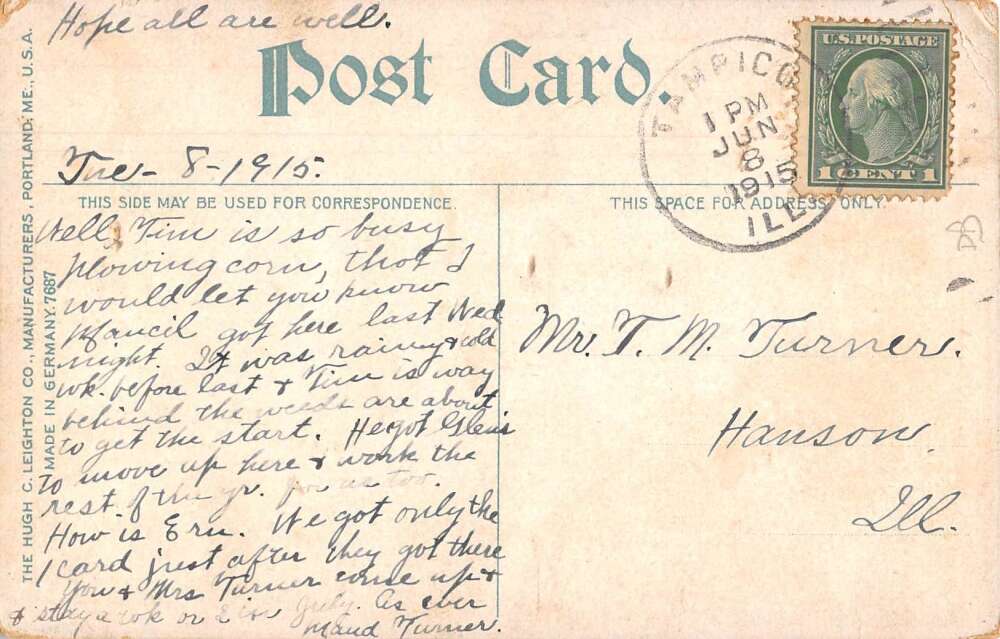 Hope all are well.
Post Card.
U.S. POSTAGE
1 CENT 1
TAMPICO
1 PM
JUN
8
1915
ILL.
Tue- 8-1915.
THIS SIDE MAY BE USED FOR CORRESPONDENCE.
THIS SPACE FOR ADDRESS ONLY.
THE HUGH C. LEIGHTON CO., MANUFACTURERS, PORTLAND, ME., U.S.A.
MADE IN GERMANY. 7687
Well, Tim is so busy
plowing corn, that I
would let you know
got here last Wed
night. It was rainy & cold
wk. before last & Tim is way
behind the weeds are about
to get the start. He got Glens
to move up here & work the
rest of the yr. for us too.
How is Ern. We got only the
1 card just after they got there
You & Mrs Turner come up &
stay a wk or 2 in July. As ever
Maud Turner.
Mr. T. M. Turner.
Hanson
Ill.